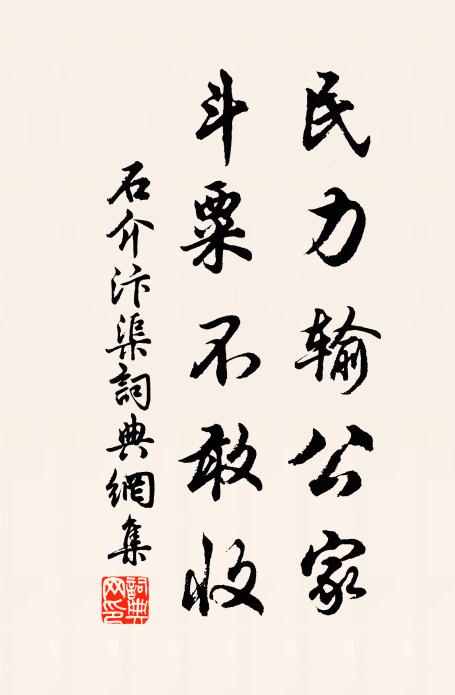 民力输公家
斗粟不敢收
石介汴渠詞典網集
詞典網印